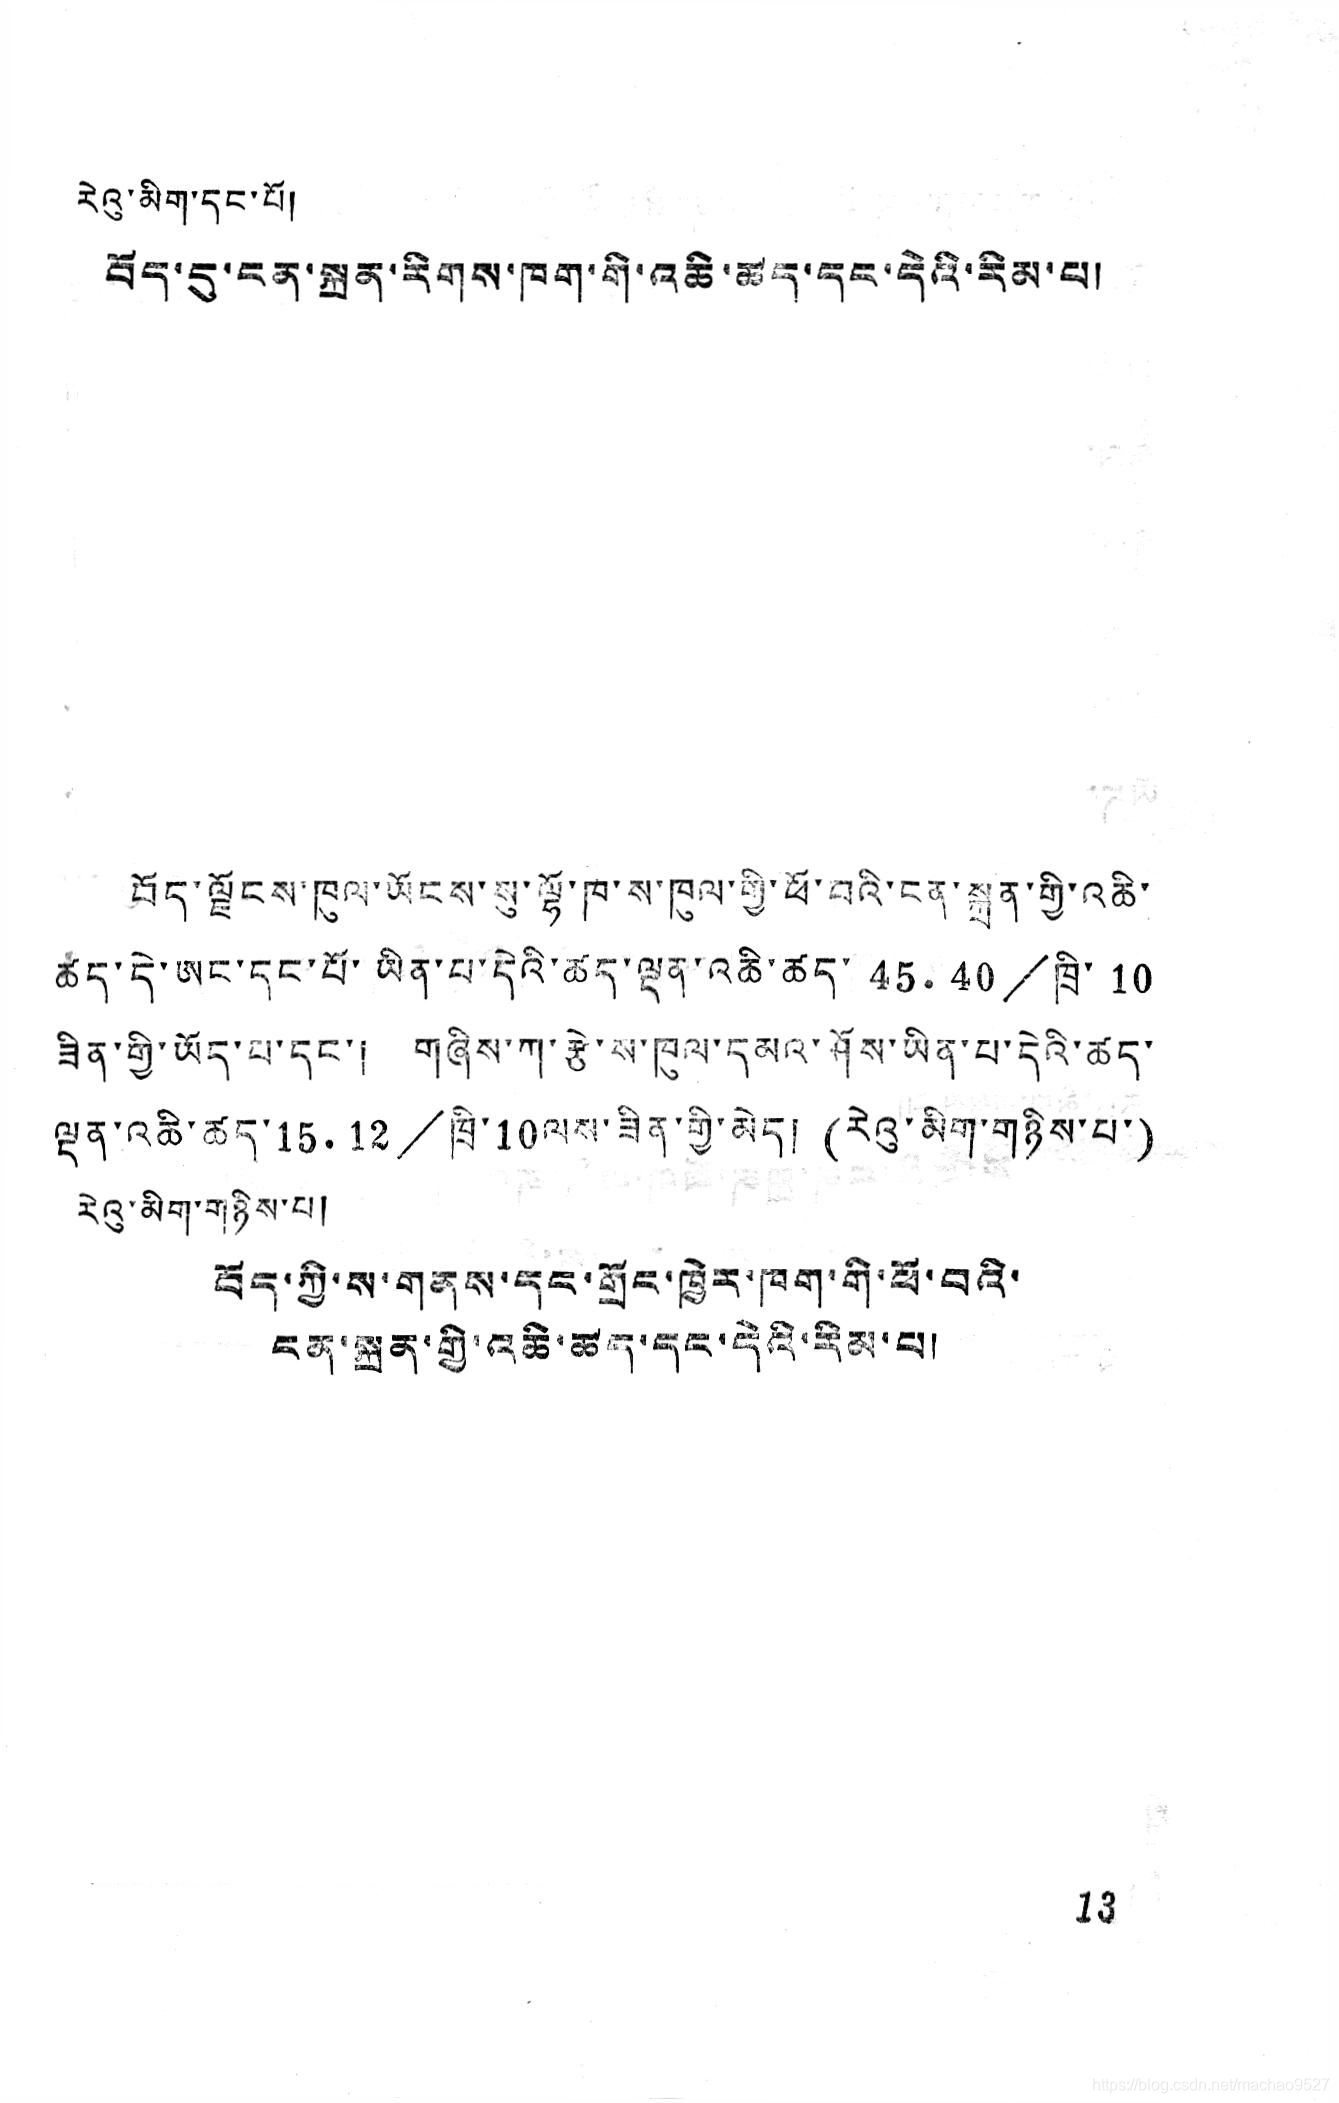 རེའུ་མིག་དང་པོ།
བོད་དུ་ངན་སྐྲན་རིགས་ཁག་གི་འཆི་ཚད་དང་དེའི་རིམ་པ།
བོད་ལྗོངས་ཁུལ་ཡོངས་སུ་ལྷོ་ཁ་ས་ཁུལ་གྱི་ཕོ་བའི་ངན་སྐྲན་གྱི་འཆི་
ཚད་དེ་ཨང་དང་པོ་ ཡིན་པ་དེའི་ཚད་ལྡན་འཆི་ཚད་ 45.40／ཁྲི་ 10
ཟིན་གྱི་ཡོད་པ་དང་། གཞིས་ཀ་རྩེ་ས་ཁུལ་དམའ་ཤོས་ཡིན་པ་དེའི་ཚད་
ལྡན་འཆི་ཚད་15.12／ཁྲི་10ལས་ཟིན་གྱི་མེད། (རེའུ་མིག་གཉིས་པ་)
རེའུ་མིག་གཉིས་པ།
བོད་ཀྱི་ས་གནས་དང་གྲོང་ཁྱེར་ཁག་གི་ཕོ་བའི་
ངན་སྐྲན་གྱི་འཆི་ཚད་དང་དེའི་རིམ་པ།
13
https://blog.csdn.net/machao9527